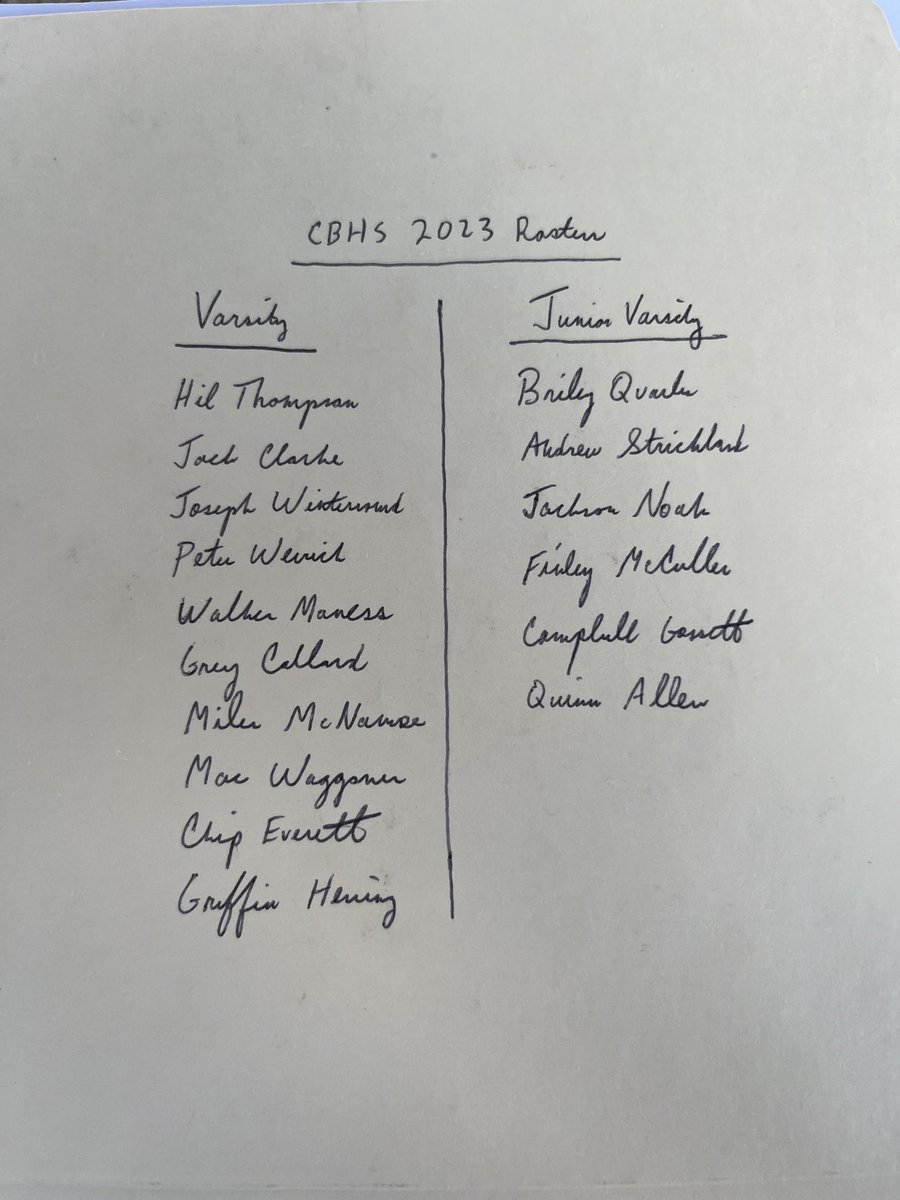 CBHS 2023 Roster
Varsity
Hil Thompson
Jack Clarke
Joseph
Peter Weirich
Walker Maness
Grey Collard
Miles McNamee
Mac Waggoner
Chip Everett
Griffin Hering
Junior Varsity
Briley Quarles
Andrew Strickland
Jackson Noah
Finley McCuller
Campbell Gossett
Quinn Allen